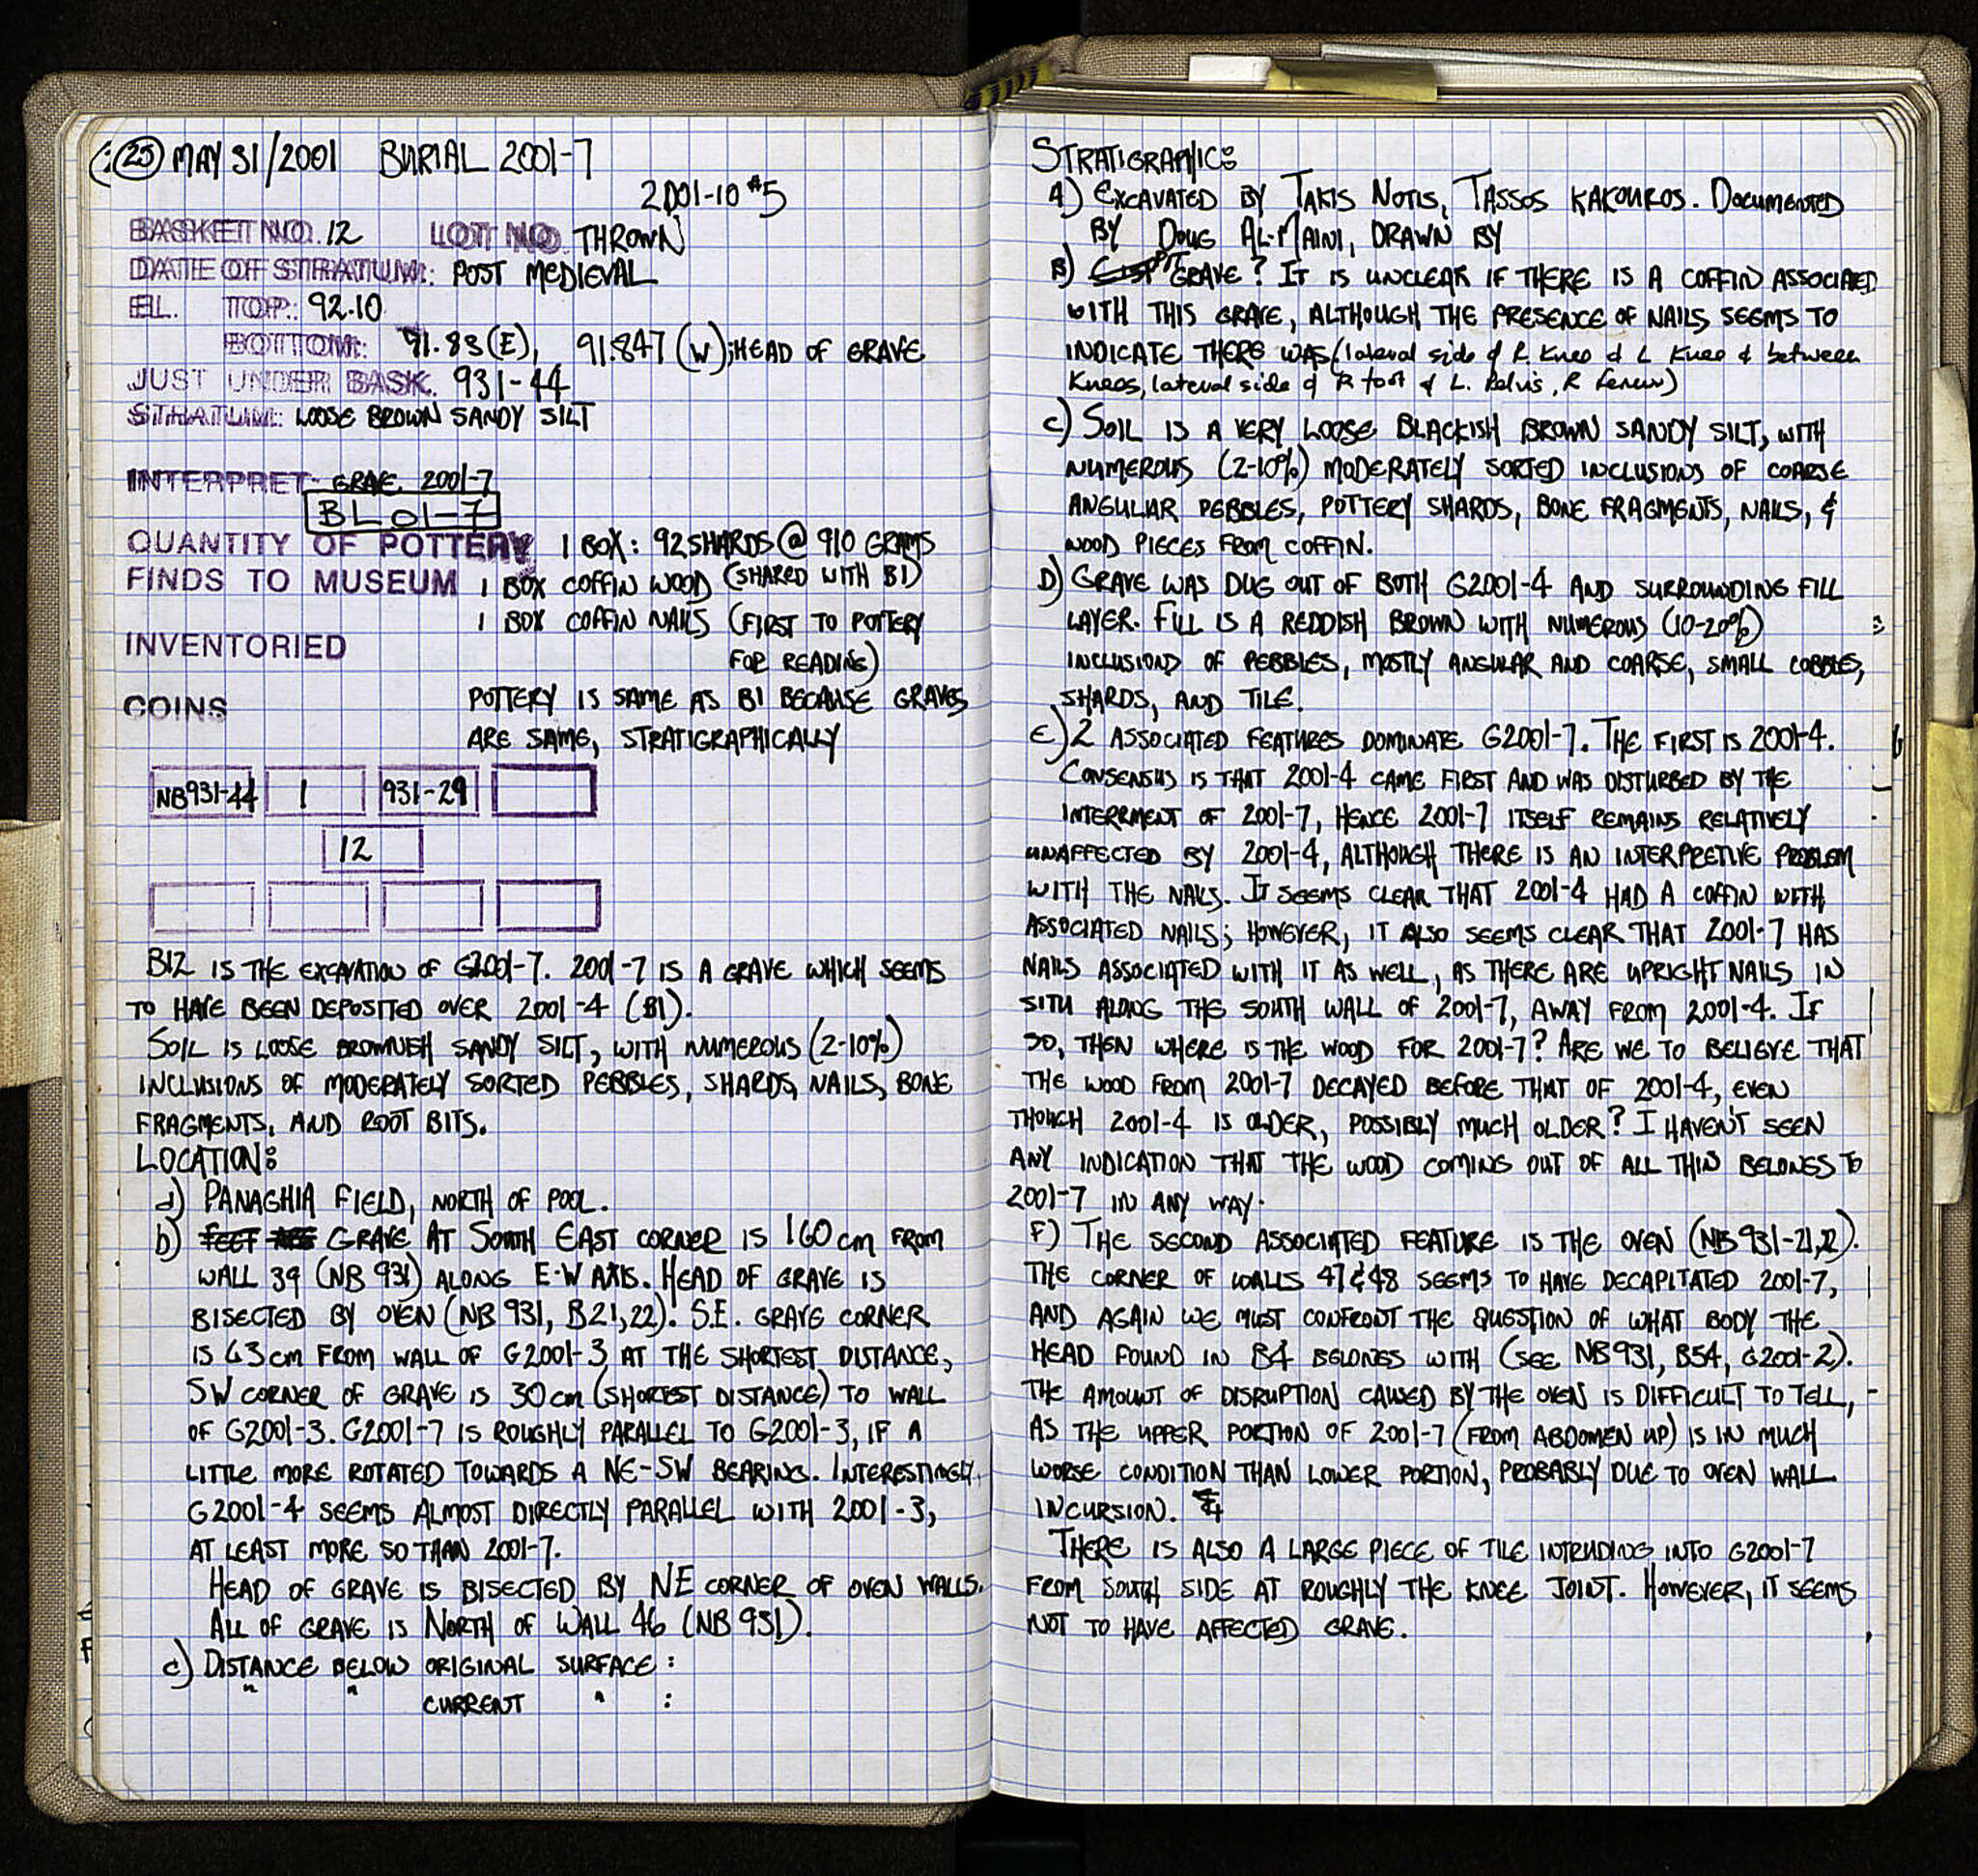 (25) MAY 31/2001 BURIAL 2001-7
2001-10 #5
BASKET NO. 12 LOT NO. THROWN
DATE OF STRATUM: POST MEDIEVAL
EL. TOP: 92.10
BOTTOM: 91.83(E), 91.847 (W); HEAD OF GRAVE
JUST UNDER BASK. 931-44
STRATUM: LOOSE BROWN SANDY SILT
INTERPRET: GRAVE 2001-7
BL 01-7
QUANTITY OF POTTERY 1 BOX: 92 SHARDS @ 910 GRAMS
FINDS TO MUSEUM 1 BOX COFFIN WOOD (SHARED WITH B1)
1 BOX COFFIN NAILS (FIRST TO POTTERY
INVENTORIED FOR READING)
COINS POTTERY IS SAME AS B1 BECAUSE GRAVES
ARE SAME, STRATIGRAPHICALLY
NB931-44 1 931-29
12
B12 IS THE EXCAVATION OF G2001-7. 2001-7 IS A GRAVE WHICH SEEMS
TO HAVE BEEN DEPOSITED OVER 2001-4 (B1).
SOIL IS LOOSE BROWNISH SANDY SILT, WITH NUMEROUS (2-10%)
INCLUSIONS OF MODERATELY SORTED PEBBLES, SHARDS, NAILS, BONE
FRAGMENTS, AND ROOT BITS.
LOCATION:
a) PANAGHIA FIELD, NORTH OF POOL.
b) GRAVE AT SOUTH EAST CORNER IS 160 cm FROM
WALL 39 (NB 931) ALONG E-W AXIS. HEAD OF GRAVE IS
BISECTED BY OVEN (NB 931, B21,22). S.E. GRAVE CORNER
IS 43 cm FROM WALL OF G2001-3 AT THE SHORTEST DISTANCE,
SW CORNER OF GRAVE IS 30 cm (SHORTEST DISTANCE) TO WALL
OF G2001-3. G2001-7 IS ROUGHLY PARALLEL TO G2001-3, IF A
LITTLE MORE ROTATED TOWARDS A NE-SW BEARING. INTERESTINGLY,
G2001-4 SEEMS ALMOST DIRECTLY PARALLEL WITH 2001-3,
AT LEAST MORE SO THAN 2001-7.
HEAD OF GRAVE IS BISECTED BY NE CORNER OF OVEN WALLS.
ALL OF GRAVE IS NORTH OF WALL 46 (NB 931).
c) DISTANCE BELOW ORIGINAL SURFACE:
" " CURRENT " :
STRATIGRAPHIC:
A) EXCAVATED BY TAKIS NOTIS, TASSOS KAKOUROS. DOCUMENTED
BY DOUG AL-MAINI, DRAWN BY
B) PIT GRAVE? IT IS UNCLEAR IF THERE IS A COFFIN ASSOCIATED
WITH THIS GRAVE, ALTHOUGH THE PRESENCE OF NAILS SEEMS TO
INDICATE THERE WAS (lateral side of R. Knee & L Knee & between
Knees, lateral side of R foot & L. Pelvis, R Femur)
C) SOIL IS A VERY LOOSE BLACKISH BROWN SANDY SILT, WITH
NUMEROUS (2-10%) MODERATELY SORTED INCLUSIONS OF COARSE
ANGULAR PEBBLES, POTTERY SHARDS, BONE FRAGMENTS, NAILS, &
WOOD PIECES FROM COFFIN.
D) GRAVE WAS DUG OUT OF BOTH G2001-4 AND SURROUNDING FILL
LAYER. FILL IS A REDDISH BROWN WITH NUMEROUS (10-20%)
INCLUSIOND OF PEBBLES, MOSTLY ANGULAR AND COARSE, SMALL COBBLES,
SHARDS, AND TILE.
E) 2 ASSOCIATED FEATURES DOMINATE G2001-7. THE FIRST IS 2001-4.
CONSENSUS IS THAT 2001-4 CAME FIRST AND WAS DISTURBED BY THE
INTERRMENT OF 2001-7, HENCE 2001-7 ITSELF REMAINS RELATIVELY
UNAFFECTED BY 2001-4, ALTHOUGH THERE IS AN INTERPRETIVE PROBLEM
WITH THE NAILS. IT SEEMS CLEAR THAT 2001-4 HAD A COFFIN WITH
ASSOCIATED NAILS; HOWEVER, IT ALSO SEEMS CLEAR THAT 2001-7 HAS
NAILS ASSOCIATED WITH IT AS WELL, AS THERE ARE UPRIGHT NAILS IN
SITU ALONG THE SOUTH WALL OF 2001-7, AWAY FROM 2001-4. IF
SO, THEN WHERE IS THE WOOD FOR 2001-7? ARE WE TO BELIEVE THAT
THE WOOD FROM 2001-7 DECAYED BEFORE THAT OF 2001-4, EVEN
THOUGH 2001-4 IS OLDER, POSSIBLY MUCH OLDER? I HAVEN'T SEEN
ANY INDICATION THAT THE WOOD COMING OUT OF ALL THIS BELONGS TO
2001-7 IN ANY WAY.
F) THE SECOND ASSOCIATED FEATURE IS THE OVEN (NB 931-21,2).
THE CORNER OF WALLS 47 & 48 SEEMS TO HAVE DECAPITATED 2001-7,
AND AGAIN WE MUST CONFRONT THE QUESTION OF WHAT BODY THE
HEAD FOUND IN B4 BELONGS WITH (SEE NB931, B54, G2001-2).
THE AMOUNT OF DISRUPTION CAUSED BY THE OVEN IS DIFFICULT TO TELL,
AS THE UPPER PORTION OF 2001-7 (FROM ABDOMEN UP) IS IN MUCH
WORSE CONDITION THAN LOWER PORTION, PROBABLY DUE TO OVEN WALL
INCURSION.
THERE IS ALSO A LARGE PIECE OF TILE INTRUDING INTO G2001-7
FROM SOUTH SIDE AT ROUGHLY THE KNEE JOINT. HOWEVER, IT SEEMS
NOT TO HAVE AFFECTED GRAVE.